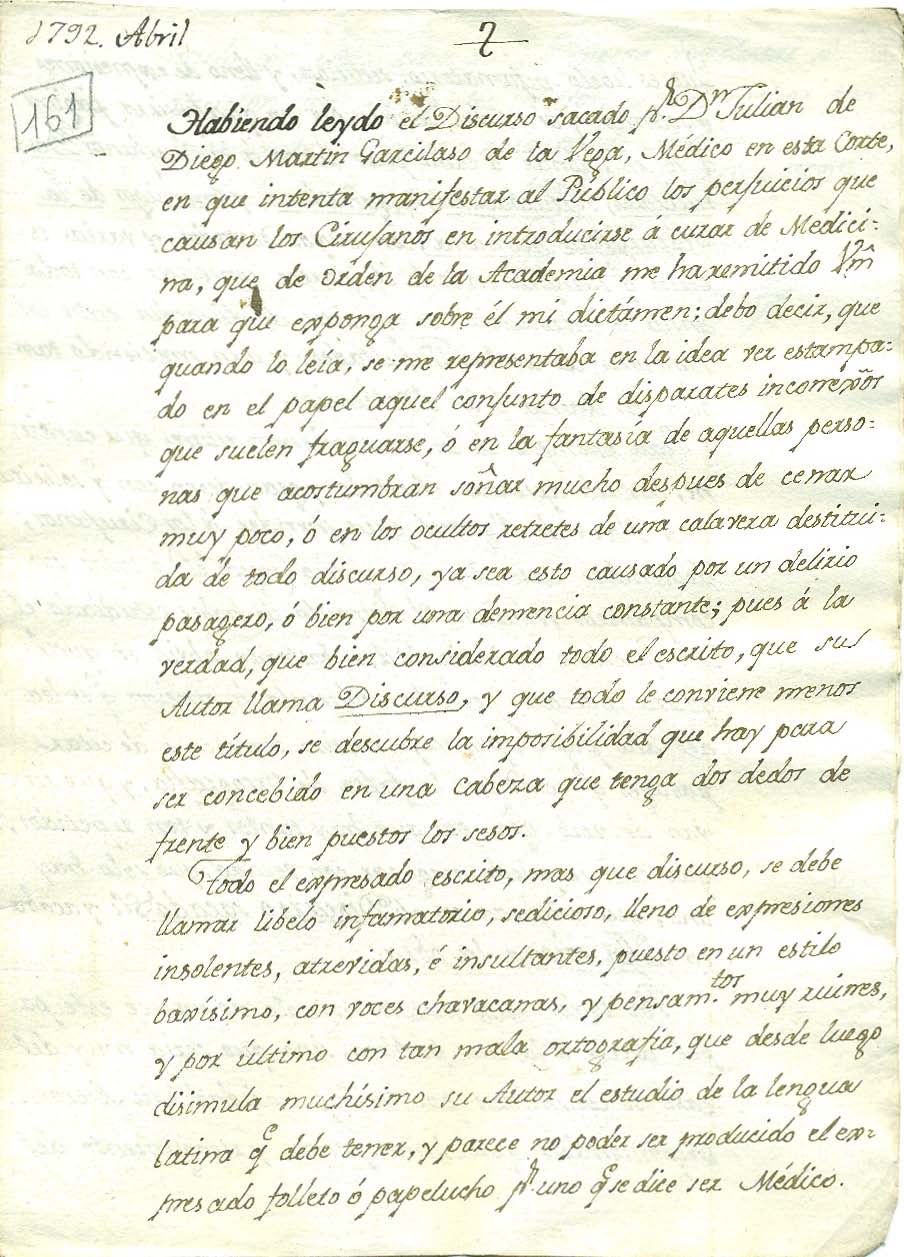 1792. Abril
2
161
Habiendo leydo el Discurso sacado pr. Dn Julian de
Diego Martin Garcilaso de la Vega, Médico en esta Corte,
en que intenta manifestar al Público los perjuicios que
causan los Cirujanos en introducirse á curar de Medici:
na, que de orden de la Academia me ha remitido Vm̃
para que exponga sobre él mi dictámen; debo decir, que
quando lo leía, se me representaba en la idea ver estampa:
do en el papel aquel conjunto de disparates inconexôs
que suelen fraguarse, ó en la fantasía de aquellas perso:
nas que acostumbran soñar mucho despues de cenar
muy poco, ó en los ocultos retretes de una calavera destitui:
da de todo discurso, ya sea esto causado por un delirio
pasagero, ó bien por una demencia constante; pues á la
verdad, que bien considerado todo el escrito, que su
Autor llama Discurso, y que todo le conviene menos
este título, se descubre la imposibilidad que hay para
ser concebido en una Cabeza que tenga dos dedos de
frente y bien puestos los sesos.
Todo el expresado escrito, mas que discurso, se debe
llamar libelo infamatorio, sedicioso, lleno de expresiones
insolentes, atrevidas, é insultantes, puesto en un estilo
baxísimo, con voces chavacanas, y pensam.tos muy ruines,
y por último con tan mala ortografía, que desde luego
disimula muchísimo su Autor el estudio de la lengua
latina qe debe tener, y parece no poder ser producido el ex-
presado folleto ó papelucho pr. uno qe se dice ser Médico.